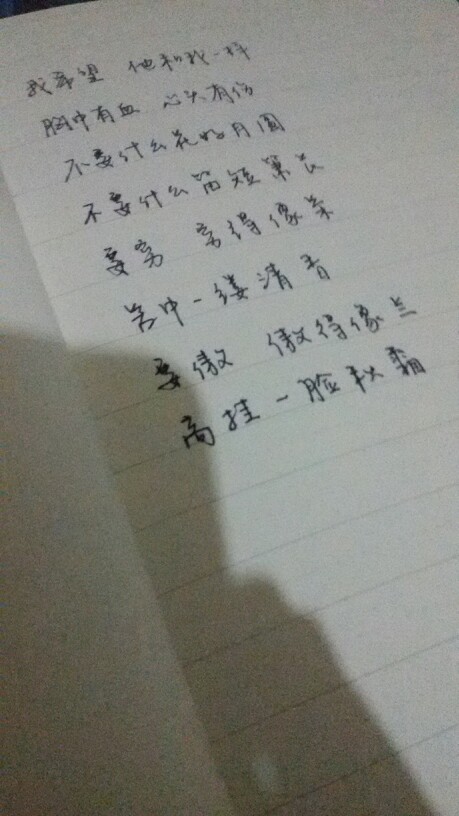 我希望 他和我一样
胸中有血 心头有伤
不要什么花好月圆
不要什么笛短箫长
要穷 穷得像茶
苦中一缕清香
要傲 傲得像兰
高挂一脸秋霜